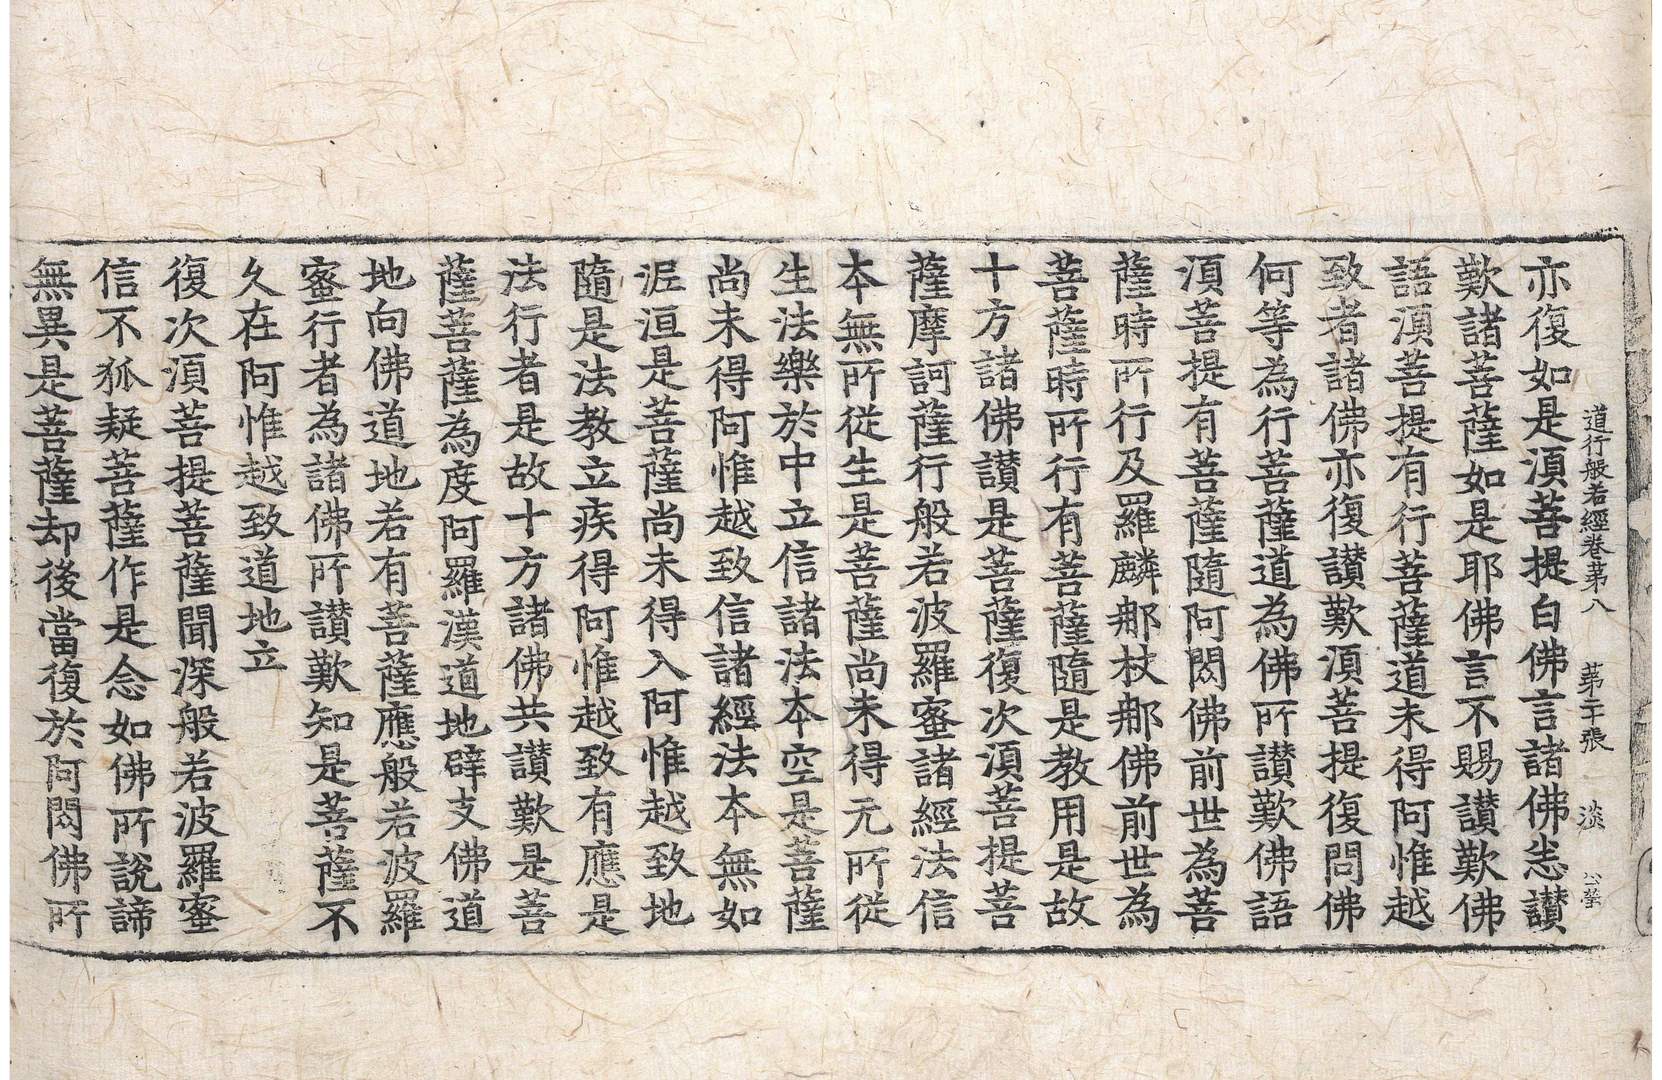 道行般若經卷第八　第二十張　淡
亦復如是須菩提白佛言諸佛悉讃
歎諸菩薩如是耶佛言不賜讃歎佛
語須菩提有行菩薩道未得阿惟越
致者諸佛亦復讃歎須菩提復問佛
何等為行菩薩道為佛所讃歎佛語
須菩提有菩薩隨阿閦佛前世為菩
薩時所行及羅麟那杖那佛前世為
菩薩時所行有菩薩隨是教用是故
十方諸佛讃是菩薩復次須菩提菩
薩摩訶薩行般若波羅蜜諸經法信
本無所從生是菩薩尚未得元所從
生法樂於中立信諸法本空是菩薩
尚未得阿惟越致信諸經法本無如
泥洹是菩薩尚未得入阿惟越致地
隨是法教立疾得阿惟越致有應是
法行者是故十方諸佛共讃歎是菩
薩菩薩為度阿羅漢道地辟支佛道
地向佛道地若有菩薩應般若波羅
蜜行者為諸佛所讃歎知是菩薩不
久在阿惟越致道地立
復次須菩提菩薩聞深般若波羅蜜
信不狐疑菩薩作是念如佛所說諦
無異是菩薩却後當復於阿閦佛所